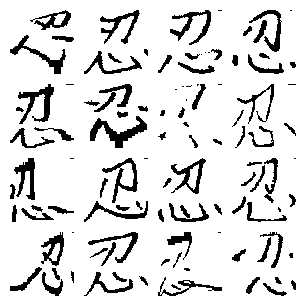 忍忍忍忍
忍忍忍忍
忍忍忍忍
忍忍忍忍